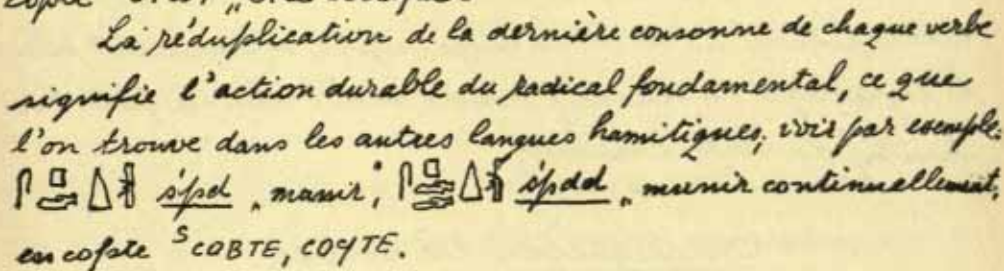 La réduplication de la dernière consonne de chaque verbe
signifie l'action durable du radical fondamental, ce que
l'on trouve dans les autres langues hamitiques; voir par exemple:
śpd „munir", śpdd „munir continuellement,
en copte ˢ ⲥⲟⲃⲧⲉ, ⲥⲟϥⲧⲉ.